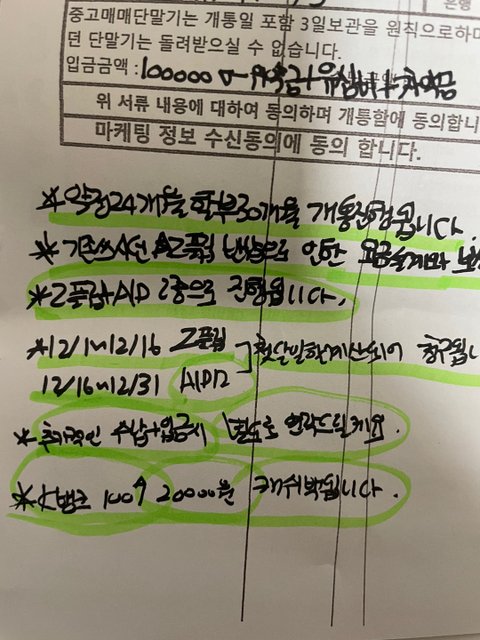 은행
중고매매단말기는 개통일 포함 3일보관을 원칙으로하며
던 단말기는 돌려받으실 수 없습니다.
입금금액 : 100000
위 서류 내용에 대하여 동의하며 개통함에 동의합니
마케팅 정보 수신동의에 동의 합니다.
*약정24개월 할부30개월 개통진행됩니다.
*기존쓰시던 Z플립 인한
*Z플립+AID 2중으로 진행됩니다.
*12/1~12/16 Z플립
첫달일할계산되어 청구됩니
12/16~12/31
* 추가적인 수납+입금시 별도로 연락드릴게요.
* 100 20000원 캐쉬백됩니다.